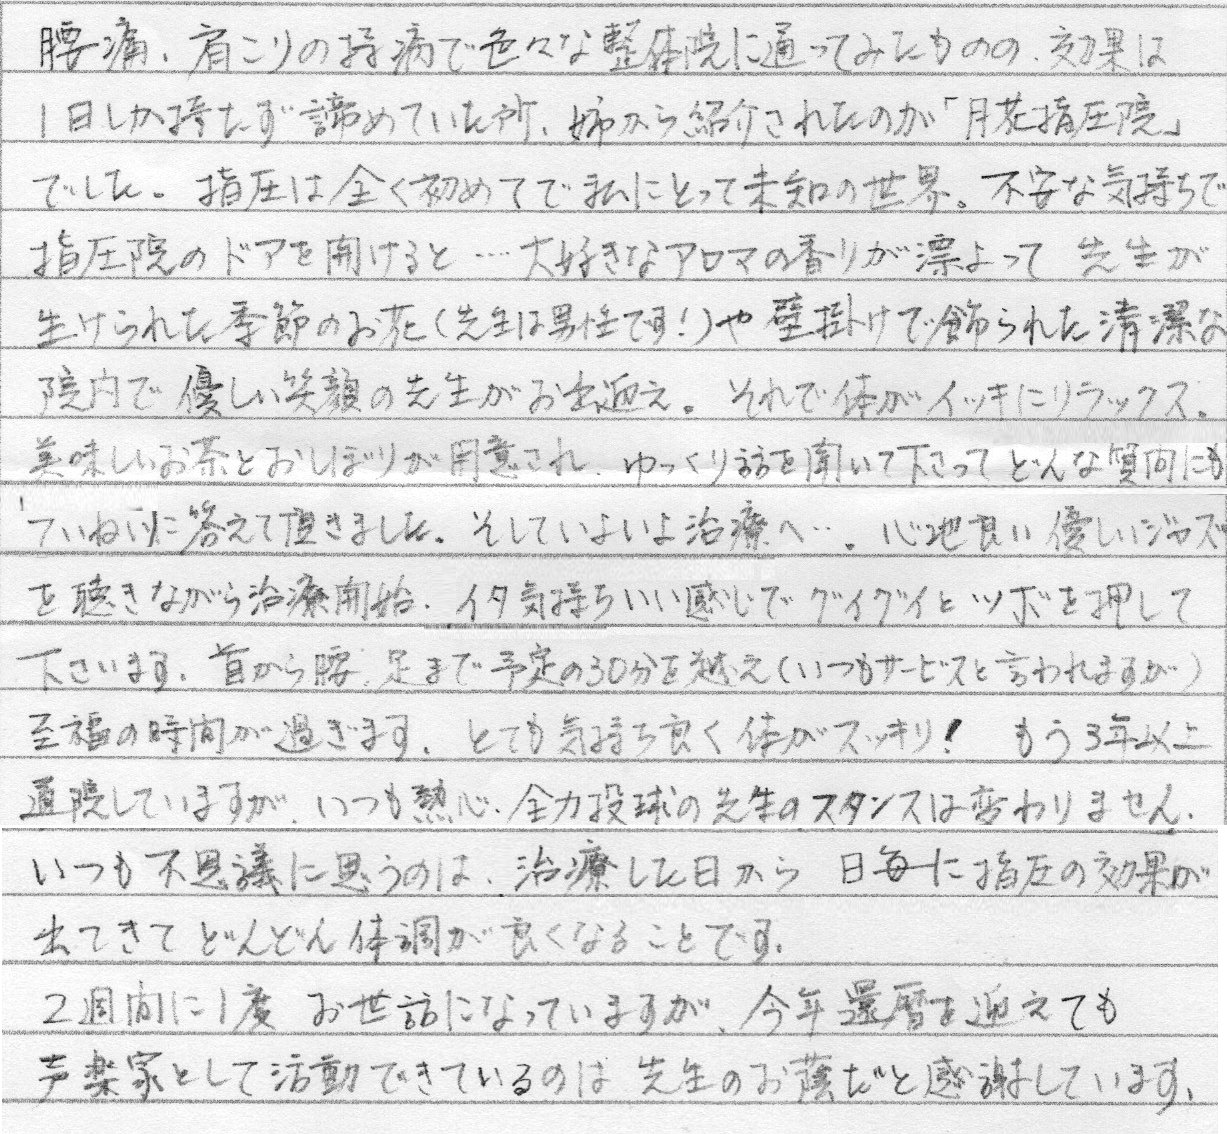 腰痛、肩こりの持病で色々な整体院に通ってみたものの、効果は
1日しか持たず諦めていた所、姉から紹介されたのが「月花指圧院」
でした。指圧は全く初めてで私にとって未知の世界。不安な気持ちで
指圧院のドアを開けると……大好きなアロマの香りが漂よって 先生が
生けられた季節のお花(先生は男性です!)や壁掛けで飾られた清潔な
院内で優しい笑顔の先生がお出迎え。それで体がイッキにリラックス。
美味しいお茶とおしぼりが用意され、ゆっくり話を聞いて下さってどんな質問にも
ていねいに答えて頂きました。そしていよいよ治療へ…。心地良い優しいジャズ
を聴きながら治療開始。イタ気持ちいい感じでグイグイとツボを押して
下さいます。首から腰、足まで予定の30分を越え(いつもサービスと言われますが)
至福の時間が過ぎます。とても気持ち良く体がスッキリ! もう3年以上
通院していますが いつも熱心、全力投球の先生のスタンスは変わりません。
いつも不思議に思うのは、治療した日から 日毎に指圧の効果が
出てきてどんどん体調が良くなることです。
2週間に1度 お世話になっていますが、今年還暦を迎えても
声楽家として活動できているのは 先生のお蔭だと感謝しています。